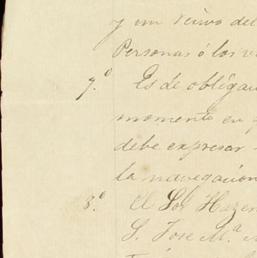 y un vivo del
Personas ó los
7º Es de obligac
momento en
debe expresar
la navegación
8º El Sor Hazen
S. Jose Mª